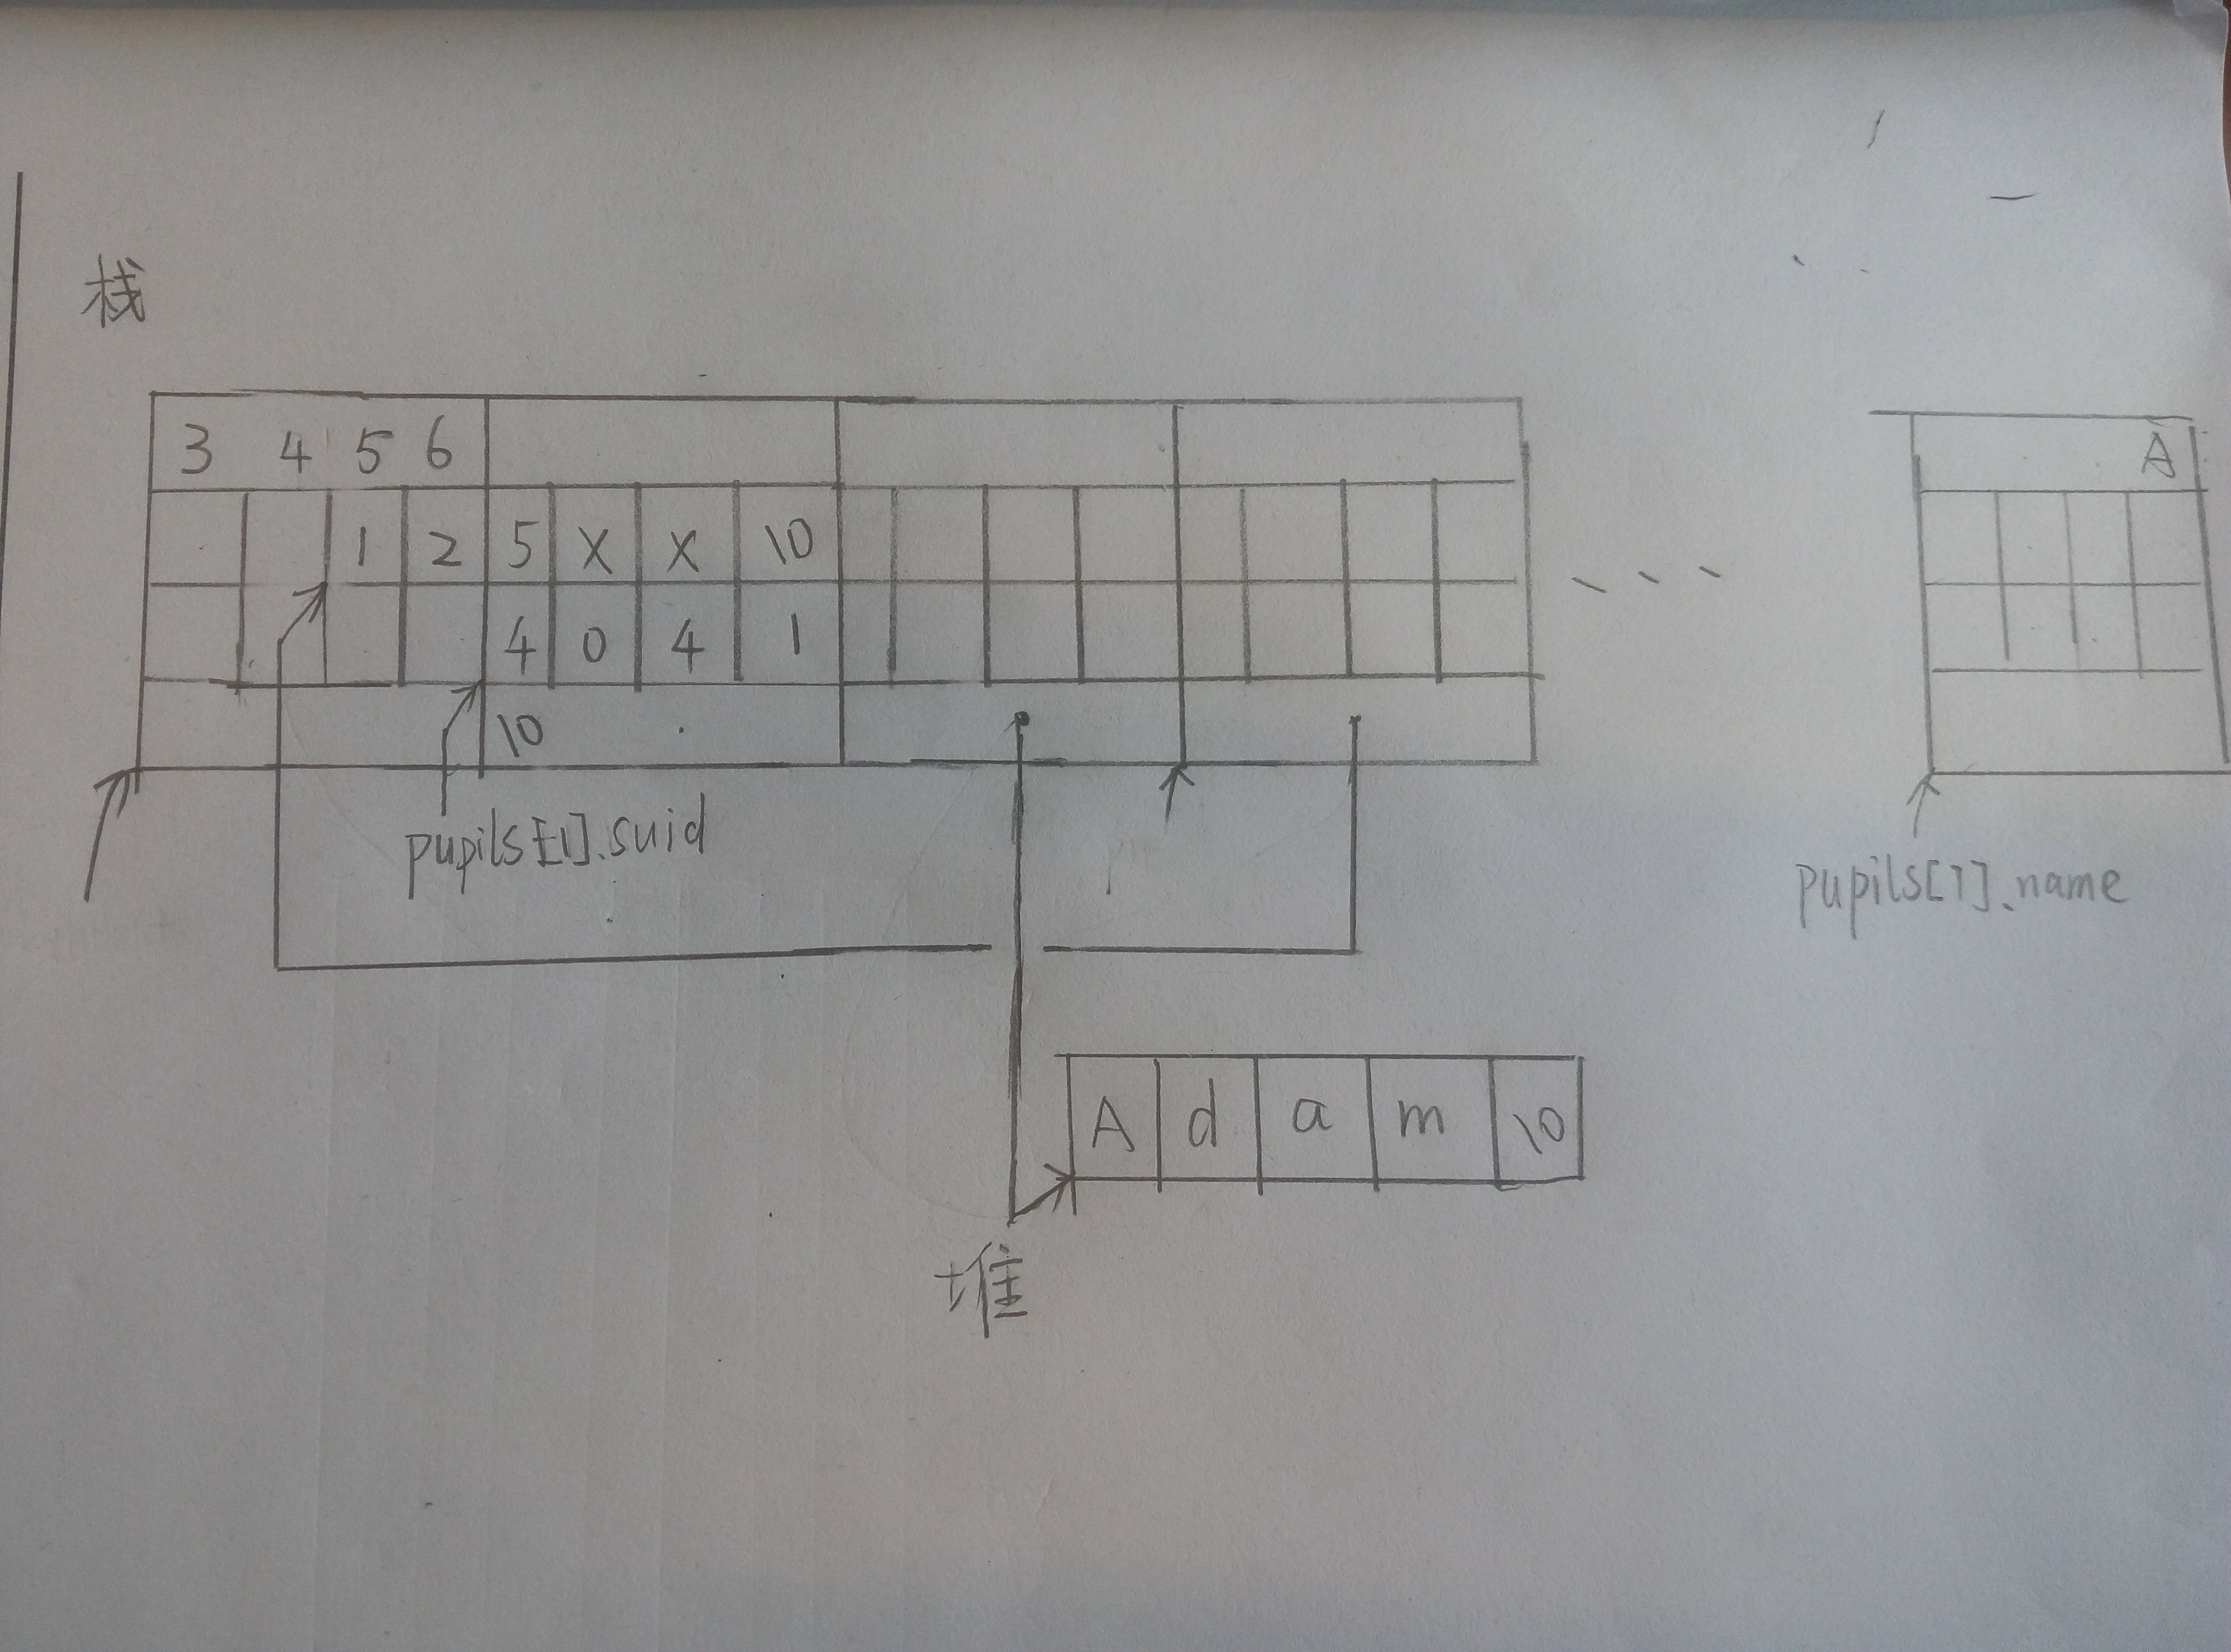 栈
3 4 5 6
A
1 2 5 X X \0
4 0 4 1
10
pupils[1].suid
pupils[7].name
A d a m \0
堆